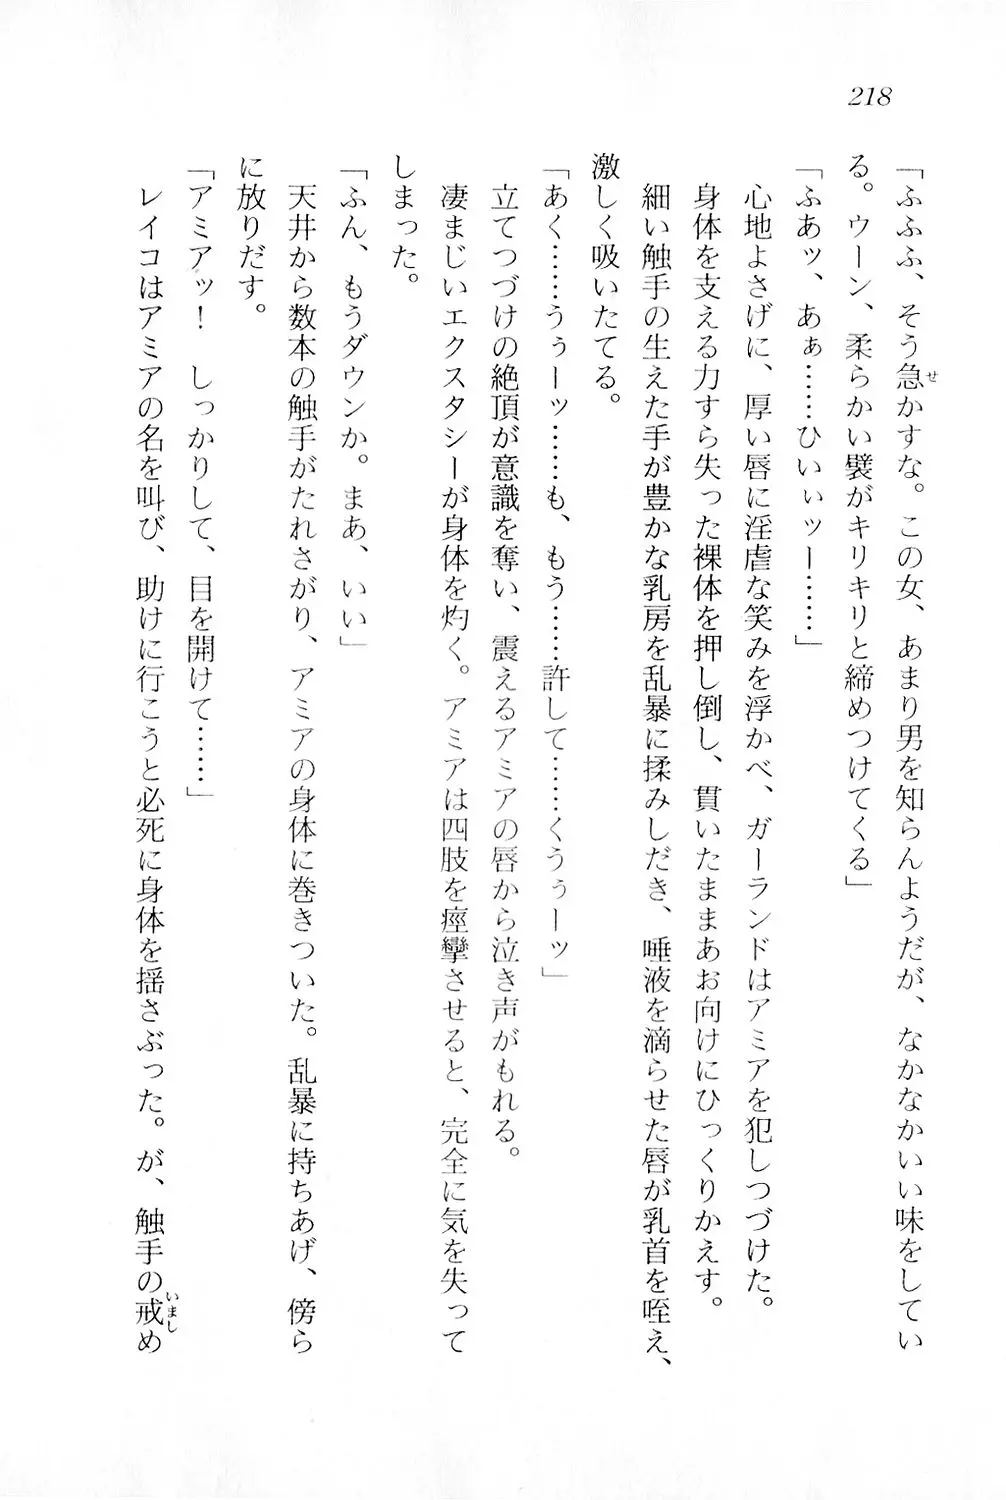 218
「ふふふ、そう急かすな。この女、あまり男を知らんようだが、なかなかいい味をしてい
る。ウーン、柔らかい襞がキリキリと締めつけてくる」
「ふあッ、あぁ……ひいぃッー……」
心地よさげに、厚い唇に淫虐な笑みを浮かべ、ガーランドはアミアを犯しつづけた。
身体を支える力すら失った裸体を押し倒し、貫いたままあお向けにひっくりかえす。
細い触手の生えた手が豊かな乳房を乱暴に揉みしだき、唾液を滴らせた唇が乳首を咥え、
激しく吸いたてる。
「あく……うぅーッ……も、もう……許して……くうぅーッ」
立てつづけの絶頂が意識を奪い、震えるアミアの唇から泣き声がもれる。
凄まじいエクスタシーが身体を灼く。アミアは四肢を痙攣させると、完全に気を失って
しまった。
「ふん、もうダウンか。まあ、いい」
天井から数本の触手がたれさがり、アミアの身体に巻きついた。乱暴に持ちあげ、傍ら
に放りだす。
「アミアッ！　しっかりして、目を開けて……」
レイコはアミアの名を叫び、助けに行こうと必死に身体を揺さぶった。が、触手の戒め